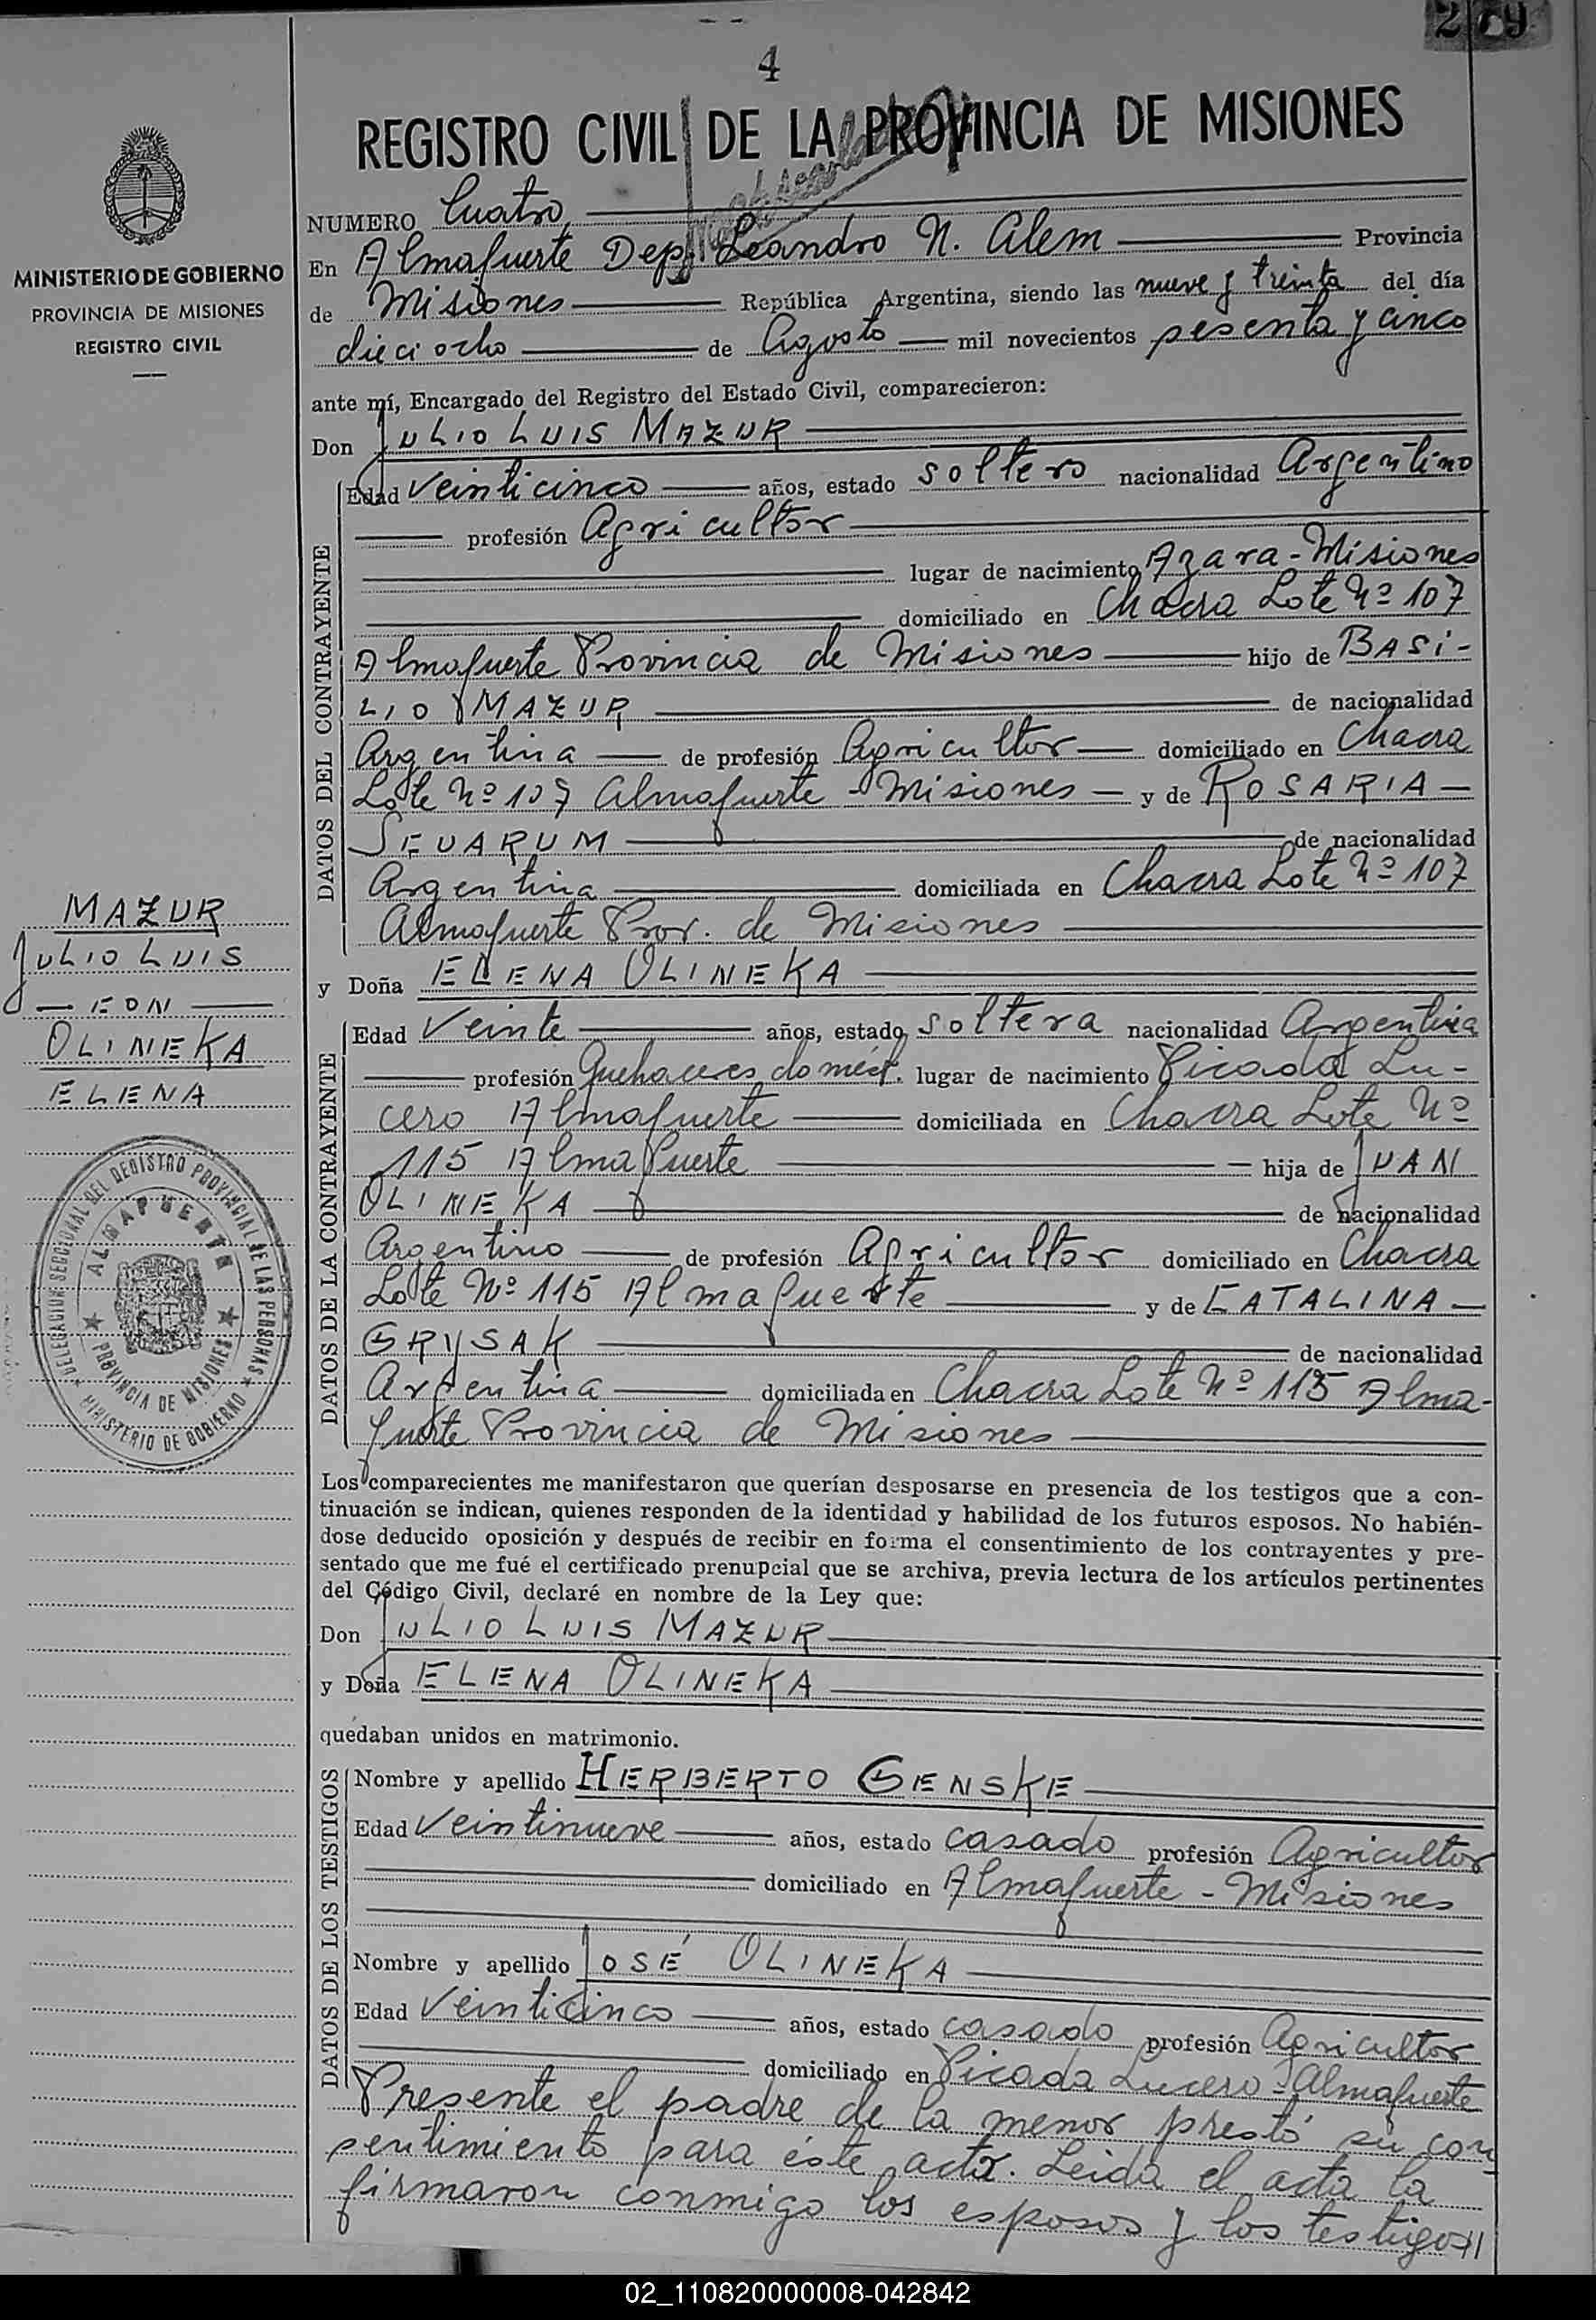 4
REGISTRO CIVIL DE LA PROVINCIA DE MISIONES
MINISTERIO DE GOBIERNO
PROVINCIA DE MISIONES
REGISTRO CIVIL
NUMERO Cuatro
En Almafuerte Dep. Leandro N. Alem Provincia
de Misiones República Argentina, siendo las nueve y treinta del día
dieciocho de Agosto mil novecientos sesenta y cinco
ante mí, Encargado del Registro del Estado Civil, comparecieron:
Don JULIO LUIS MAZUR
DATOS DEL CONTRAYENTE
Edad Veinticinco años, estado soltero nacionalidad Argentino
profesión Agricultor
lugar de nacimiento Azara - Misiones
domiciliado en Chacra Lote Nº 107
Almafuerte Provincia de Misiones hijo de BASI-
LIO MAZUR de nacionalidad
Argentina de profesión Agricultor domiciliado en Chacra
Lote Nº 107 Almafuerte - Misiones y de ROSARIA
SEUARUM de nacionalidad
Argentina domiciliada en Chacra Lote Nº 107
Almafuerte Prov. de Misiones
MAZUR
JULIO LUIS
- CON -
OLINEKA
ELENA
y Doña ELENA OLINEKA
DATOS DE LA CONTRAYENTE
Edad Veinte años, estado soltera nacionalidad Argentina
profesión Quehaceres domést. lugar de nacimiento Picada Lu-
cero Almafuerte domiciliada en Chacra Lote Nº
115 Almafuerte hija de JUAN
OLINEKA de nacionalidad
Argentino de profesión Agricultor domiciliado en Chacra
Lote Nº 115 Almafuerte y de CATALINA
GRYSAK de nacionalidad
Argentina domiciliada en Chacra Lote Nº 115 Alma-
fuerte Provincia de Misiones
DELEGACION SECCIONAL DEL REGISTRO PROVINCIAL DE LAS PERSONAS
ALMAFUERTE
PROVINCIA DE MISIONES
MINISTERIO DE GOBIERNO
Los comparecientes me manifestaron que querían desposarse en presencia de los testigos que a con-
tinuación se indican, quienes responden de la identidad y habilidad de los futuros esposos. No habién-
dose deducido oposición y después de recibir en forma el consentimiento de los contrayentes y pre-
sentado que me fué el certificado prenupcial que se archiva, previa lectura de los artículos pertinentes
del Código Civil, declaré en nombre de la Ley que:
Don JULIO LUIS MAZUR
y Doña ELENA OLINEKA
quedaban unidos en matrimonio.
DATOS DE LOS TESTIGOS
Nombre y apellido HERBERTO GENSKE
Edad Veintinueve años, estado casado profesión Agricultor
domiciliado en Almafuerte - Misiones
Nombre y apellido JOSÉ OLINEKA
Edad Veinticinco años, estado casado profesión Agricultor
domiciliado en Picada Lucero - Almafuerte
Presente el padre de la menor prestó su con
sentimiento para éste acto. Leida el acta la
firmaron conmigo los esposos y los testigos
02_110820000008-042842